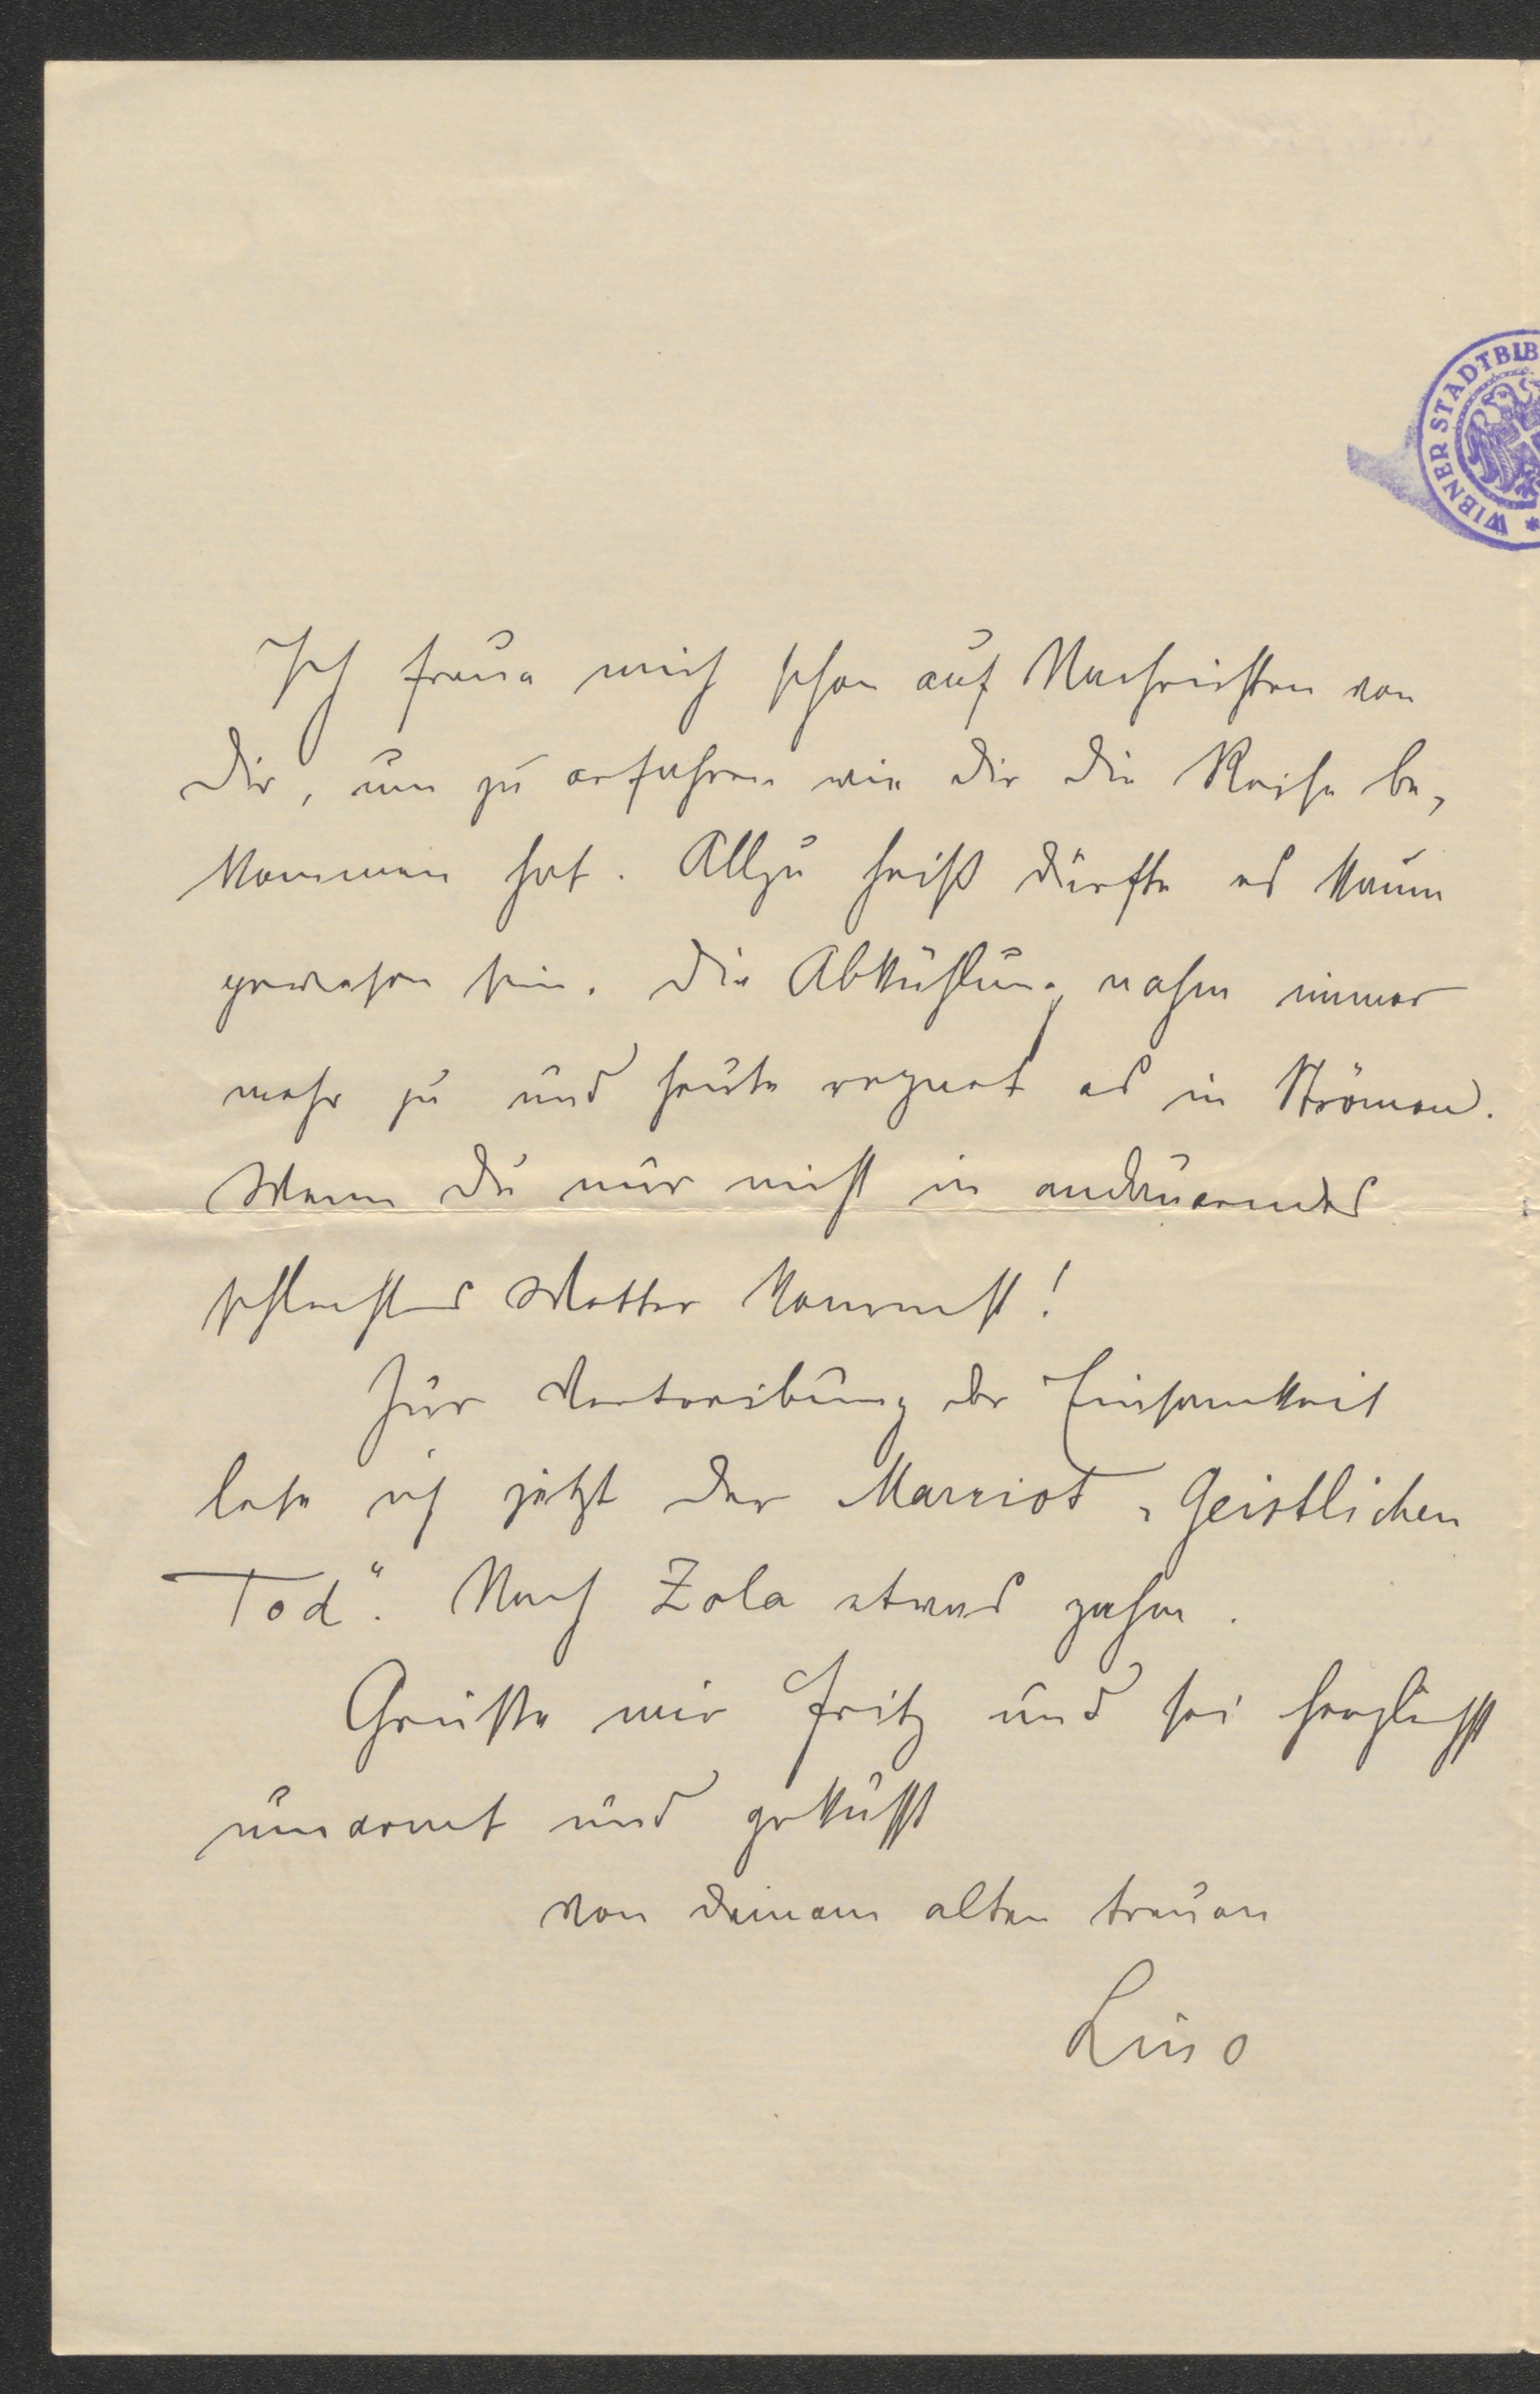 WIENER STADTBIB
Ich freue mich schon auf Nachrichten von
Dir, um zu erfahren wie Dir die Reise be-
kommen hat. Allzu heiß dürfte es kaum
gewesen sein. Die Abkühlung nahm immer
mehr zu und heute regnet es in Strömen.
Wenn Du nur nicht in andauerndes
schlechtes Wetter kommst!
Zur Vertreibung der Einsamkeit
lese ich jetzt der Marriot „Geistlichen
Tod“. Nach Zola etwas zahm.
Grüße mir Fritz und sei herzlichst
umarmt und geküsst
von Deinem alten treuen
Lino